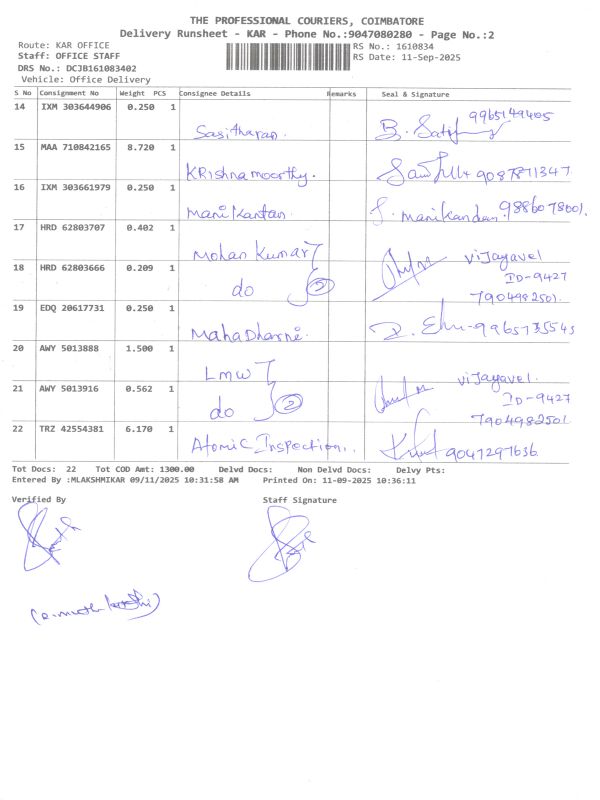 THE PROFESSIONAL COURIERS, COIMBATORE
Delivery Runsheet - KAR - Phone No.:9047080280 - Page No.:2
Route: KAR OFFICE RS No.: 1610834
Staff: OFFICE STAFF RS Date: 11-Sep-2025
DRS No.: DCJB161083402
Vehicle: Office Delivery
S No Consignment No Weight PCS Consignee Details Remarks Seal & Signature
14 IXM 303644906 0.250 1
Sasitharan. 9965149405
15 MAA 710842165 8.720 1
KRishnamoorthy. 9087871347
16 IXM 303661979 0.250 1
Manikantan. J. Manikandan. 9886078001.
17 HRD 62803707 0.402 1
Mohan Kumar Vijayavel
18 HRD 62803666 0.209 1
do 2 ID-9427
7904982501.
19 EDQ 20617731 0.250 1
MahaDharne. 9965735543
20 AWY 5013888 1.500 1
LMW Vijayavel.
21 AWY 5013916 0.562 1
do 2 ID-9427
7904982501
22 TRZ 42554381 6.170 1
Atomic Inspection.. 9047297636
Tot Docs: 22 Tot COD Amt: 1300.00 Delvd Docs: Non Delvd Docs: Delvy Pts:
Entered By :MLAKSHMIKAR 09/11/2025 10:31:58 AM Printed On: 11-09-2025 10:36:11
Verified By Staff Signature